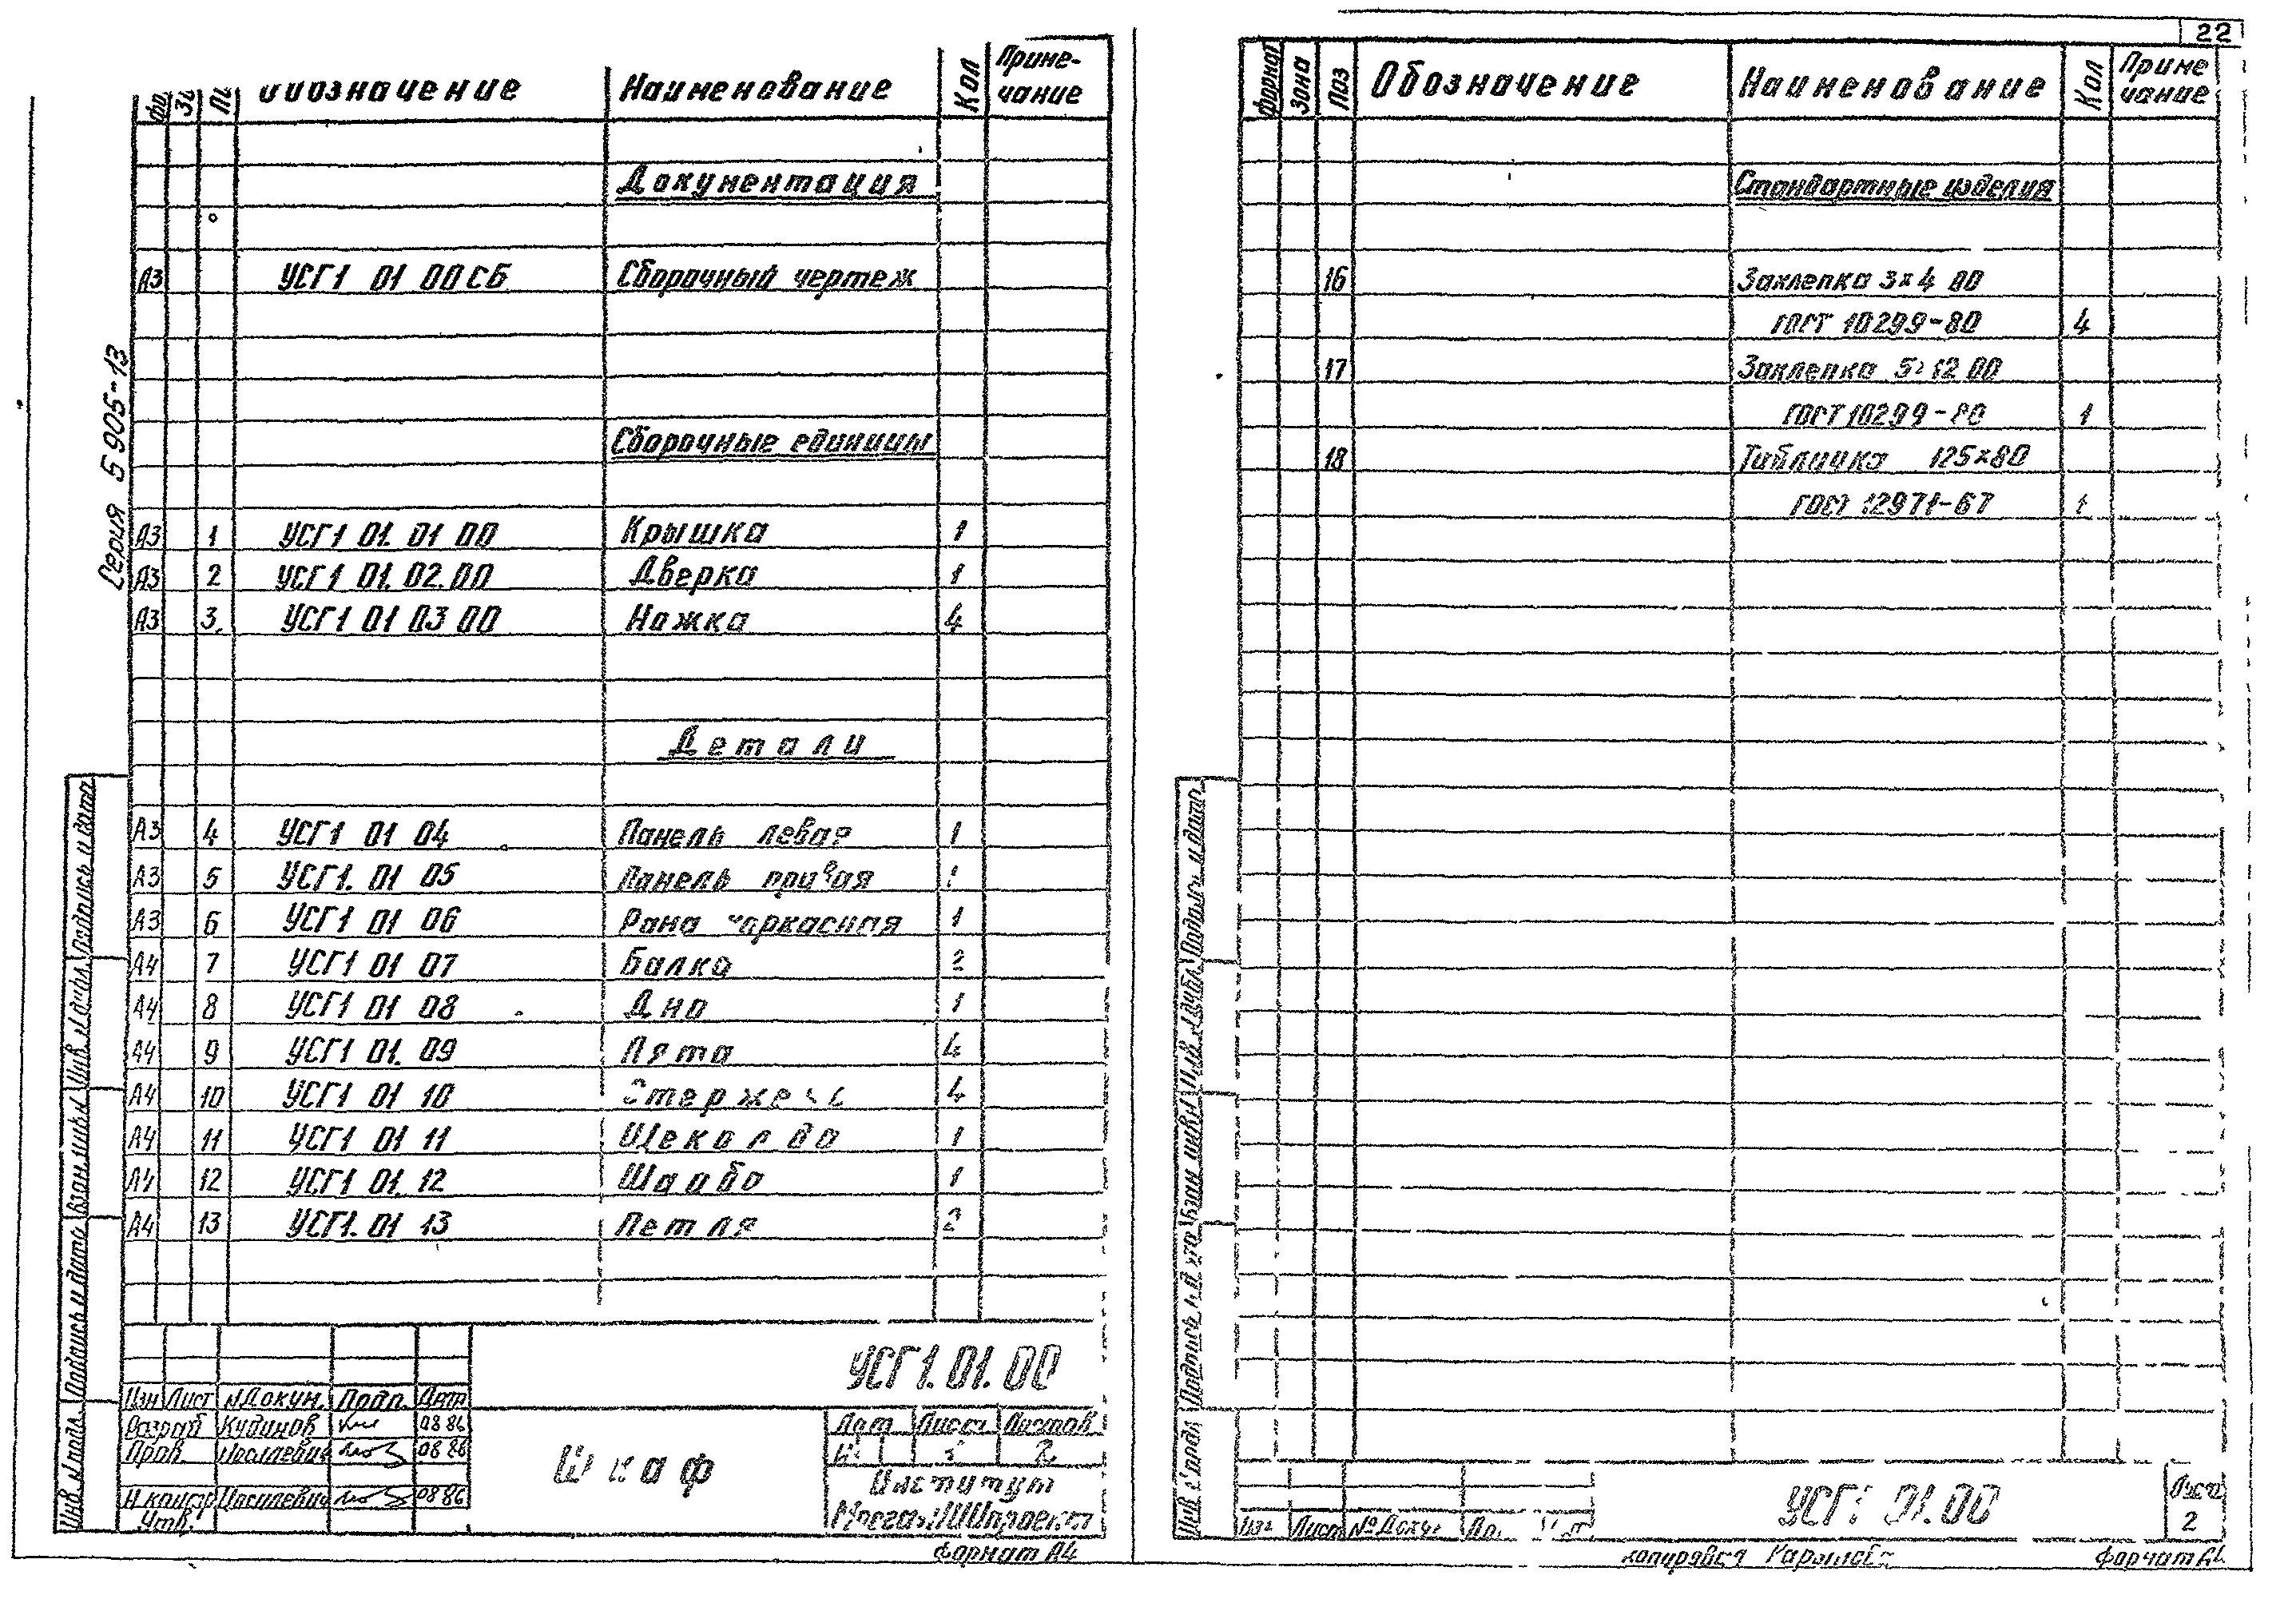 22
Серия 5 905-13
Обозначение Наименование Кол Приме-
чание
Документация
А3 УСГ1 01 00 СБ Сборочный чертеж
Сборочные единицы
А3 1 УСГ1 01. 01 00 Крышка 1
А3 2 УСГ1 01. 02. 00 Дверка 1
А3 3. УСГ1 01 03 00 Ножка 4
Детали
А3 4 УСГ1 01 04 Панель левая 1
А3 5 УСГ1. 01 05 Панель правая 1
А3 6 УСГ1 01 06 Рама каркасная 1
А4 7 УСГ1 01 07 Балка 2
А4 8 УСГ1 01 08 Дно 1
А4 9 УСГ1 01. 09 Пята 4
А4 10 УСГ1 01 10 Стержень 4
А4 11 УСГ1 01 11 Щеколда 1
А4 12 УСГ1 01. 12 Шайба 1
А4 13 УСГ1. 01 13 Петля 2
Инв. № подл. Подпись и дата Взам. инв. № Инв. № дубл. Подпись и дата
УСГ1. 01. 00
Изм Лист № Докум. Подп. Дата
Разраб Кудинов 08 86
Пров. 08 86
Н контр 08 86
Утв.
Шкаф
Лит Лист Листов
2
Институт
МосгазНИИпроект
Формат А4
Формат Зона Поз Обозначение Наименование Кол Приме
чание
Стандартные изделия
16 Заклепка 3×4 00
ГОСТ 10299-80 4
17 Заклепка 5×12 00
ГОСТ 10299-80 1
18 Табличка 125×80
ГОСТ 12971-67 1
Инв. № подл Подпись и дата Взам инв № Инв. № дубл. Подпись и дата
Изм Лист № Докум
УСГ1 01.00
Лист
2
копировал
Формат А4